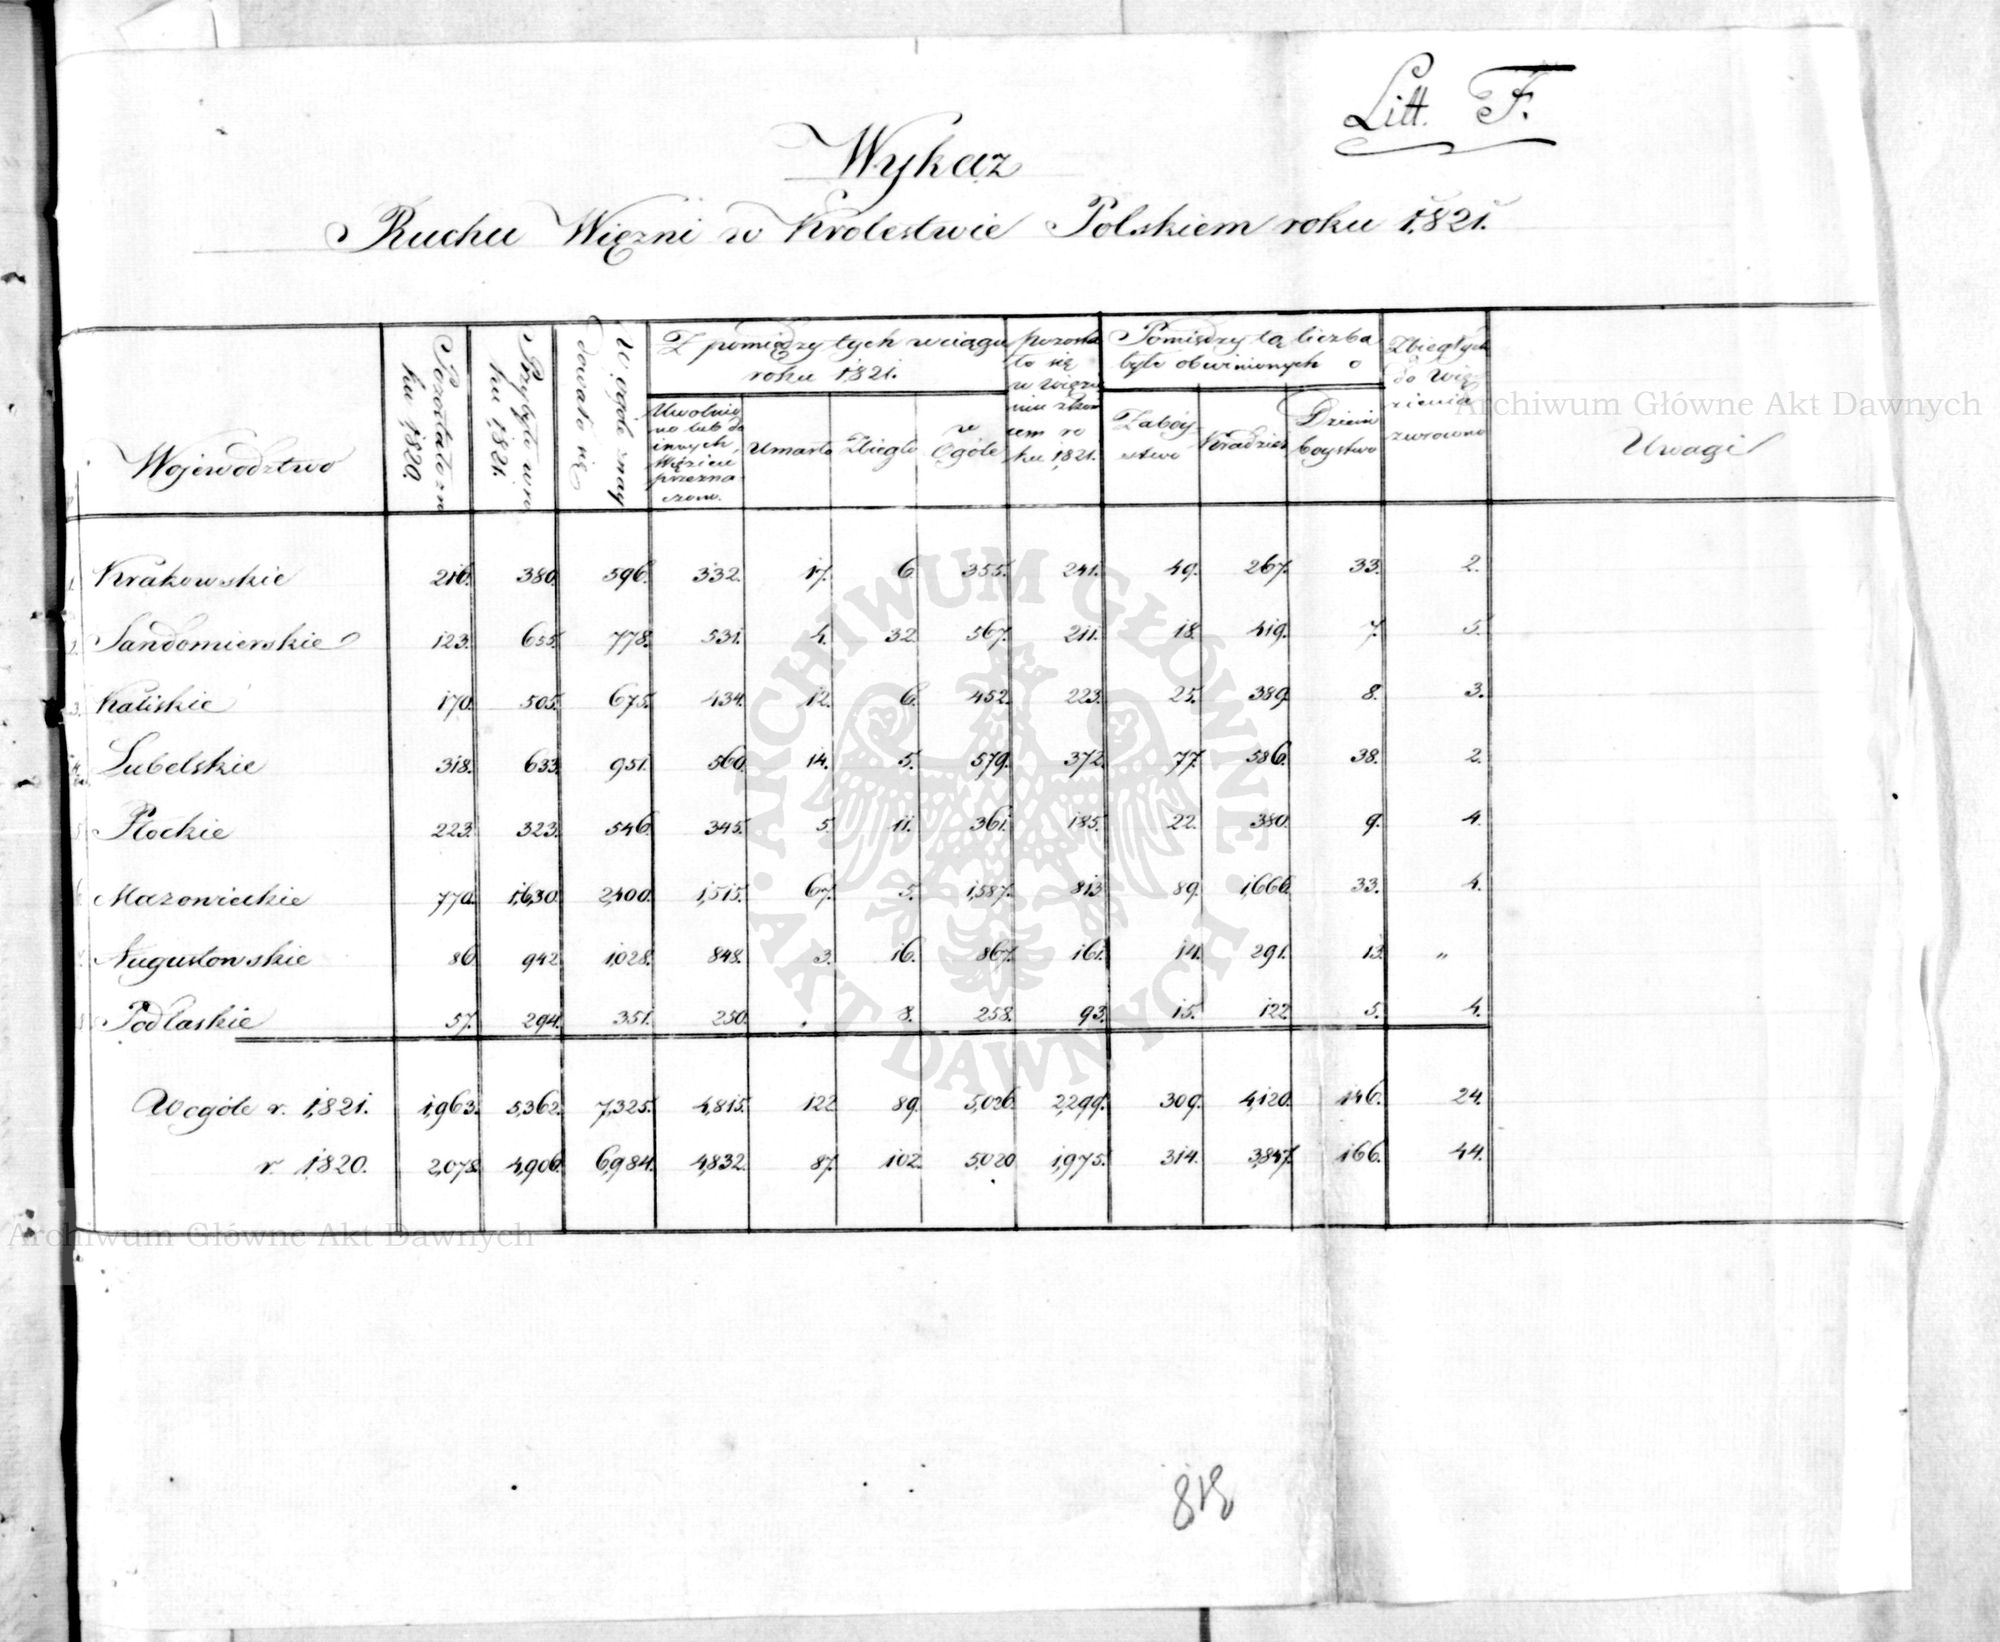 Litt. F.
Wykaz
Ruchu Więzni w Krolestwie Polskiem roku 1821.
Województwo
Pozostało z ro
ku 1,820.
Przybyło w ro
ku 1,821.
W ogóle znay
dowało się
Z pomiędzy tych w ciągu
roku 1,821.
Uwolnio
no lub do
innych
Więzień
przezna
czono.
Umarło
Zbiegło
w
Ogóle
pozosta
ło się
w więzie
niu z koń
cem ro
ku 1,821.
Pomiędzy tą liczbą
było obwinionych o
Zabóy
stwo
Kradzież
Dziecio
boystwo
Zbiegłych
do Wię
zienia
zwrócono
Uwagi
1. Krakowskie 216. 380. 596. 332. 17. 6. 355. 241. 49. 267. 33. 2.
2. Sandomierskie 123. 655. 778. 531. 4. 32. 567. 211. 18. 419. 7. 5.
3. Kaliskie 170. 505. 675. 434. 12. 6. 452. 223. 25. 389. 8. 3.
4. Lubelskie 318. 633. 951. 560. 14. 5. 579. 372. 77. 586. 38. 2.
5. Płockie 223. 323. 546. 345. 5. 11. 361. 185. 22. 380. 9. 4.
6. Mazowieckie 770. 1,630. 2,400. 1,515. 67. 5. 1,587. 813. 89. 1,666. 33. 4.
Augustowskie 86. 942. 1,028. 848. 3. 16. 867. 161. 14. 291. 13. "
8. Podlaskie 57. 294. 351. 250. . 8. 258. 93. 15. 122. 5. 4.
W ogóle r. 1,821. 1,963. 5,362. 7,325. 4,815. 122. 89. 5,026. 2,299. 309. 4,120. 146. 24.
r. 1,820. 2,078. 4,906. 6,984. 4,832. 87. 102. 5,020. 1,975. 314. 3,847. 166. 44.
Archiwum Główne Akt Dawnych
Archiwum Główne Akt Dawnych
ARCHIWUM GŁÓWNE · AKT DAWNYCH ·